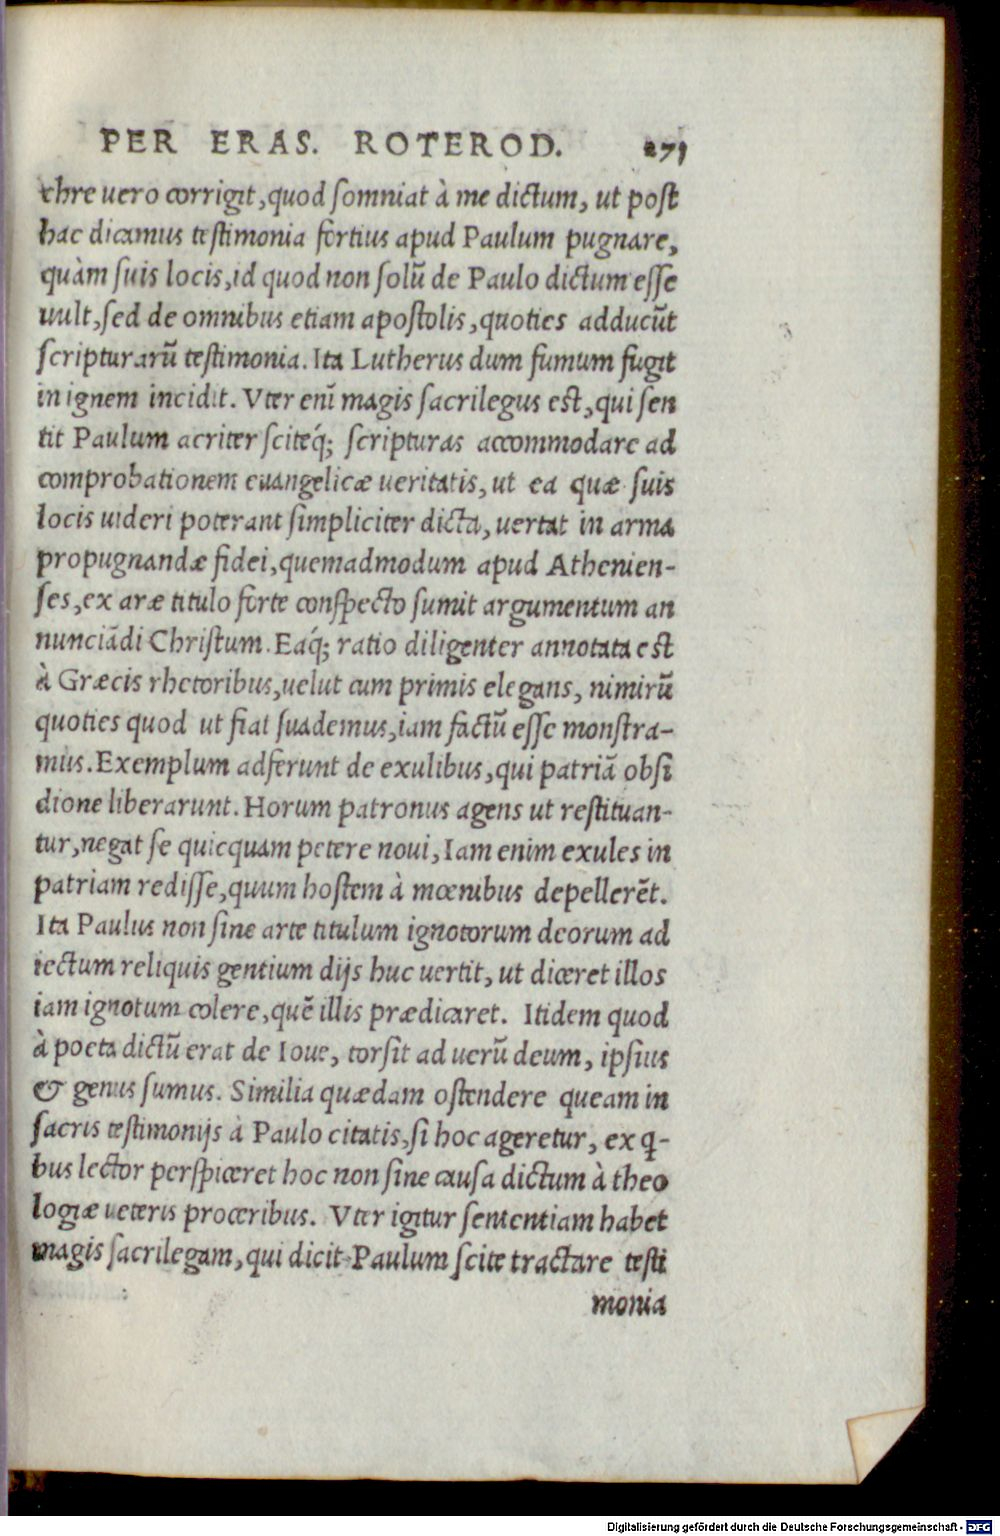 PER ERAS. ROTEROD. 271
chre uero corrigit, quod ſomniat à me dictum, ut poſt
hac dicamus teſtimonia fortius apud Paulum pugnare,
quàm ſuis locis, id quod non ſolũ de Paulo dictum eſſe
uult, ſed de omnibus etiam apoſtolis, quoties adducũt
ſcripturarũ teſtimonia. Ita Lutherus dum fumum fugit
in ignem incidit. Vter enĩ magis ſacrilegus eſt, qui ſen
tit Paulum acriter ſciteq́; ſcripturas accommodare ad
comprobationem euangelicæ ueritatis, ut ea quæ ſuis
locis uideri poterant ſimpliciter dicta, uertat in arma
propugnandæ fidei, quemadmodum apud Athenien-
ſes, ex aræ titulo forte conſpecto ſumit argumentum an
nunciãdi Chriſtum. Eaq́; ratio diligenter annotata eſt
à Græcis rhetoribus, uelut cum primis elegans, nimirũ
quoties quod ut fiat ſuademus, iam factũ eſſe monſtra-
mus. Exemplum adferunt de exulibus, qui patriã obſi
dione liberarunt. Horum patronus agens ut reſtituan-
tur, negat ſe quicquam petere noui, Iam enim exules in
patriam rediſſe, quum hoſtem à mœnibus depellerẽt.
Ita Paulus non ſine arte titulum ignotorum deorum ad
iectum reliquis gentium dijs huc uertit, ut diceret illos
iam ignotum colere, quẽ illis prædicaret. Itidem quod
à poeta dictũ erat de Ioue, torſit ad uerũ deum, ipſius
& genus ſumus. Similia quædam oſtendere queam in
ſacris teſtimonijs à Paulo citatis, ſi hoc ageretur, ex ꝗ-
bus lector perſpiceret hoc non ſine cauſa dictum à theo
logiæ ueteris proceribus. Vter igitur ſententiam habet
magis ſacrilegam, qui dicit Paulum ſcite tractare teſti
monia
Digitalisierung gefördert durch die Deutsche Forschungsgemeinschaft - DFG